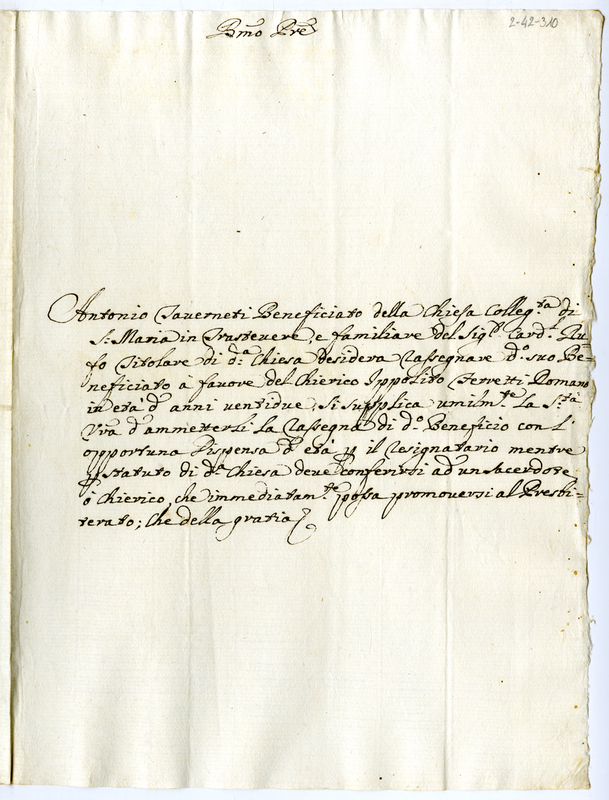 2-42-310
Bmo Pre
Antonio Taverneti Beneficiato della Chiesa Colleg.ta di
S. Maria in Trastevere, e familiare del Sig.r Card. Ru-
fo Titolare di d.a Chiesa desidera rassegnare d.o suo Be-
neficiato a favore del Chierico Ippolito Ferretti Romano
in età d' anni ventidue; Si supplica umilm.te la S.tà
Vra d' ammettersi la rassegna di d.o Beneficio con l'
opportuna Dispensa d' età p il resignatario mentre
p statuto di d.a Chiesa deve conferirsi ad un sacerdote
ò Chierico, che immediatam.te possa promoversi al Presbi-
terato; Che della gratia